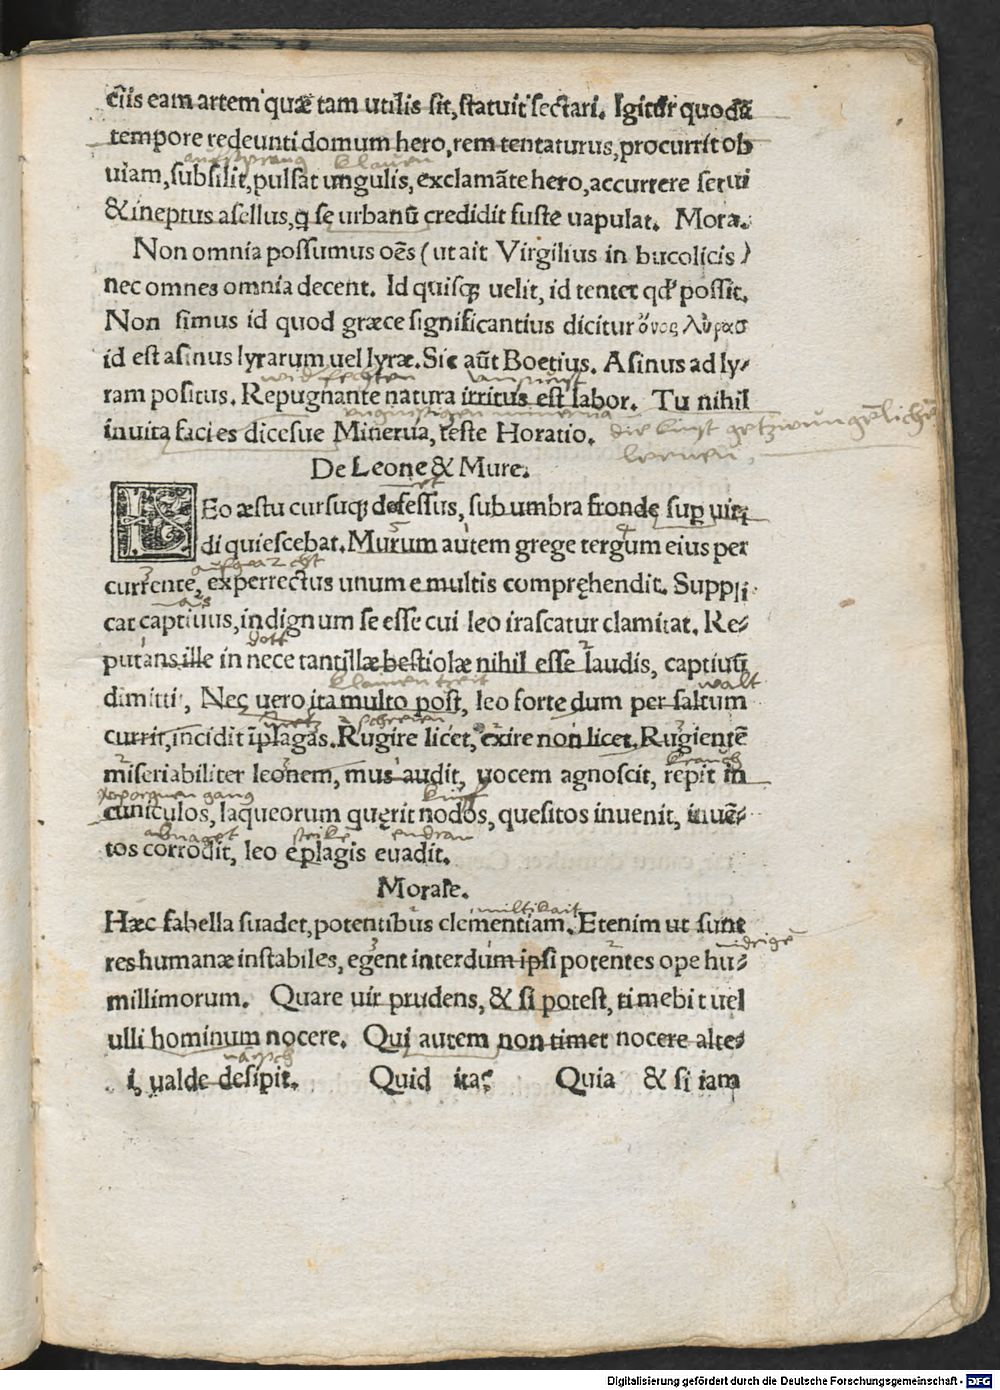 cīis eam artem quæ tam utilis sit, statuit sectari. Igitur quodā
tempore redeunti domum hero, rem tentaturus, procurrit ob
aufsprang klauen
uiam, subsilit, pulsat ungulis, exclamāte hero, accurrere serui
& ineptus asellus, q se urbanū credidit fuste uapulat. Mora.
Non omnia possumus oēs (ut ait Virgilius in bucolicis)
nec omnes omnia decent. Id quisq; uelit, id tentet qđ possit.
Non simus id quod græce significantius dicitur ὄνος λύρασ
id est asinus lyrarum uel lyræ. Sic aūt Boetius. Asinus ad ly-
widfechten
ram positus. Repugnante natura irritus est labor. Tu nihil
minerua
inuita facies dicesue Minerua, teste Horatio.
die kunst
lernen
De Leone & Mure.
LEo æstu cursuq; defessus, sub umbra fronde sup uiri
di quiescebat. Murum autem grege tergum eius per
currente, experrectus unum e multis compręhendit. Suppli
aus
cat captiuus, indignum se esse cui leo irascatur clamitat. Re-
dott
putans ille in nece tantillæ bestiolæ nihil esse laudis, captiuū
walt
dimitti, Nec uero ita multo post, leo forte dum per saltum
netz schreien
currit, incidit ī plagas. Rugire licet, exire non licet. Rugientē
miseriabiliter leonem, mus audit, uocem agnoscit, repit in
gang
cuniculos, laqueorum quęrit nodos, quesitos inuenit, inuē-
abnaget strike
tos corrodit, leo e plagis euadit.
Morale.
miltikait
Hæc fabella suadet, potentibus clementiam. Etenim ut sunt
res humanæ instabiles, egent interdum ipsi potentes ope hu-
millimorum. Quare uir prudens, & si potest, timebit uel
ulli hominum nocere. Qui autem non timet nocere alte-
i, ualde desipit. Quid ita? Quia & si iam
Digitalisierung gefördert durch die Deutsche Forschungsgemeinschaft - DFG